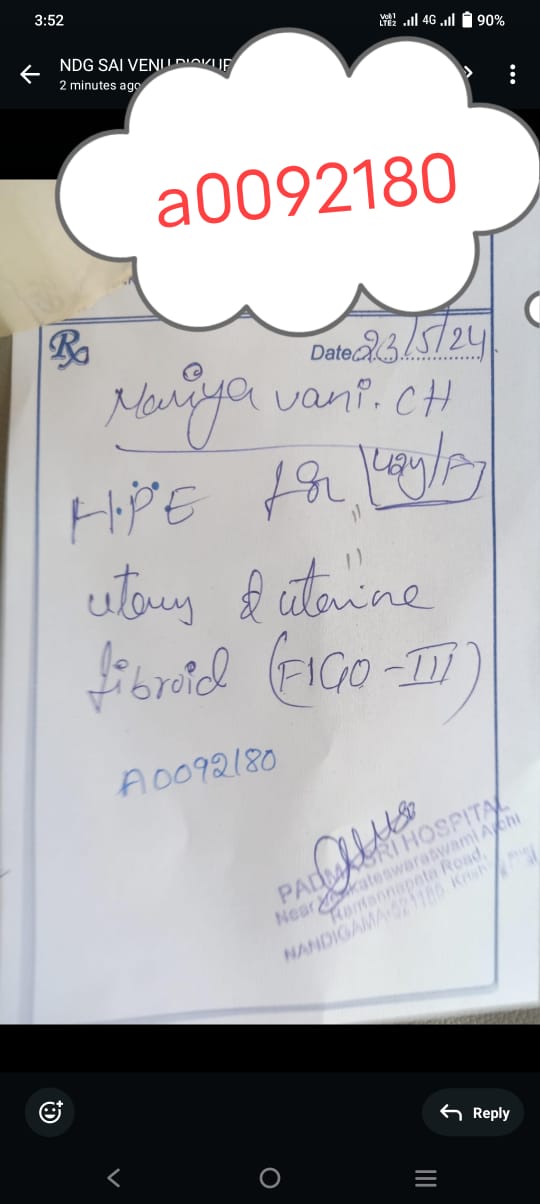 3:52
4G
90%
NDG SAI VENU PICKUP
2 minutes ago
a0092180
Rx
Date 23/5/24
Mariya vani. CH
H.P.E for 42y/F
uterus & uterine
fibroid (FIGO-III)
A0092180
PADMASRI HOSPITAL
Near Venkateswaraswami Archi
Ramannapeta Road,
NANDIGAMA-521185
Reply